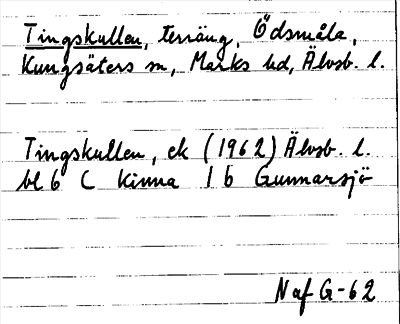 Tingskullen, terräng, Ödsmåla,
Kungsäters sn, Marks hd, Älvsb. l.
Tingskullen, ek (1962) Älvsb. l.
bl 6 C Kinna 1 b Gunnarsjö
Naf G-62